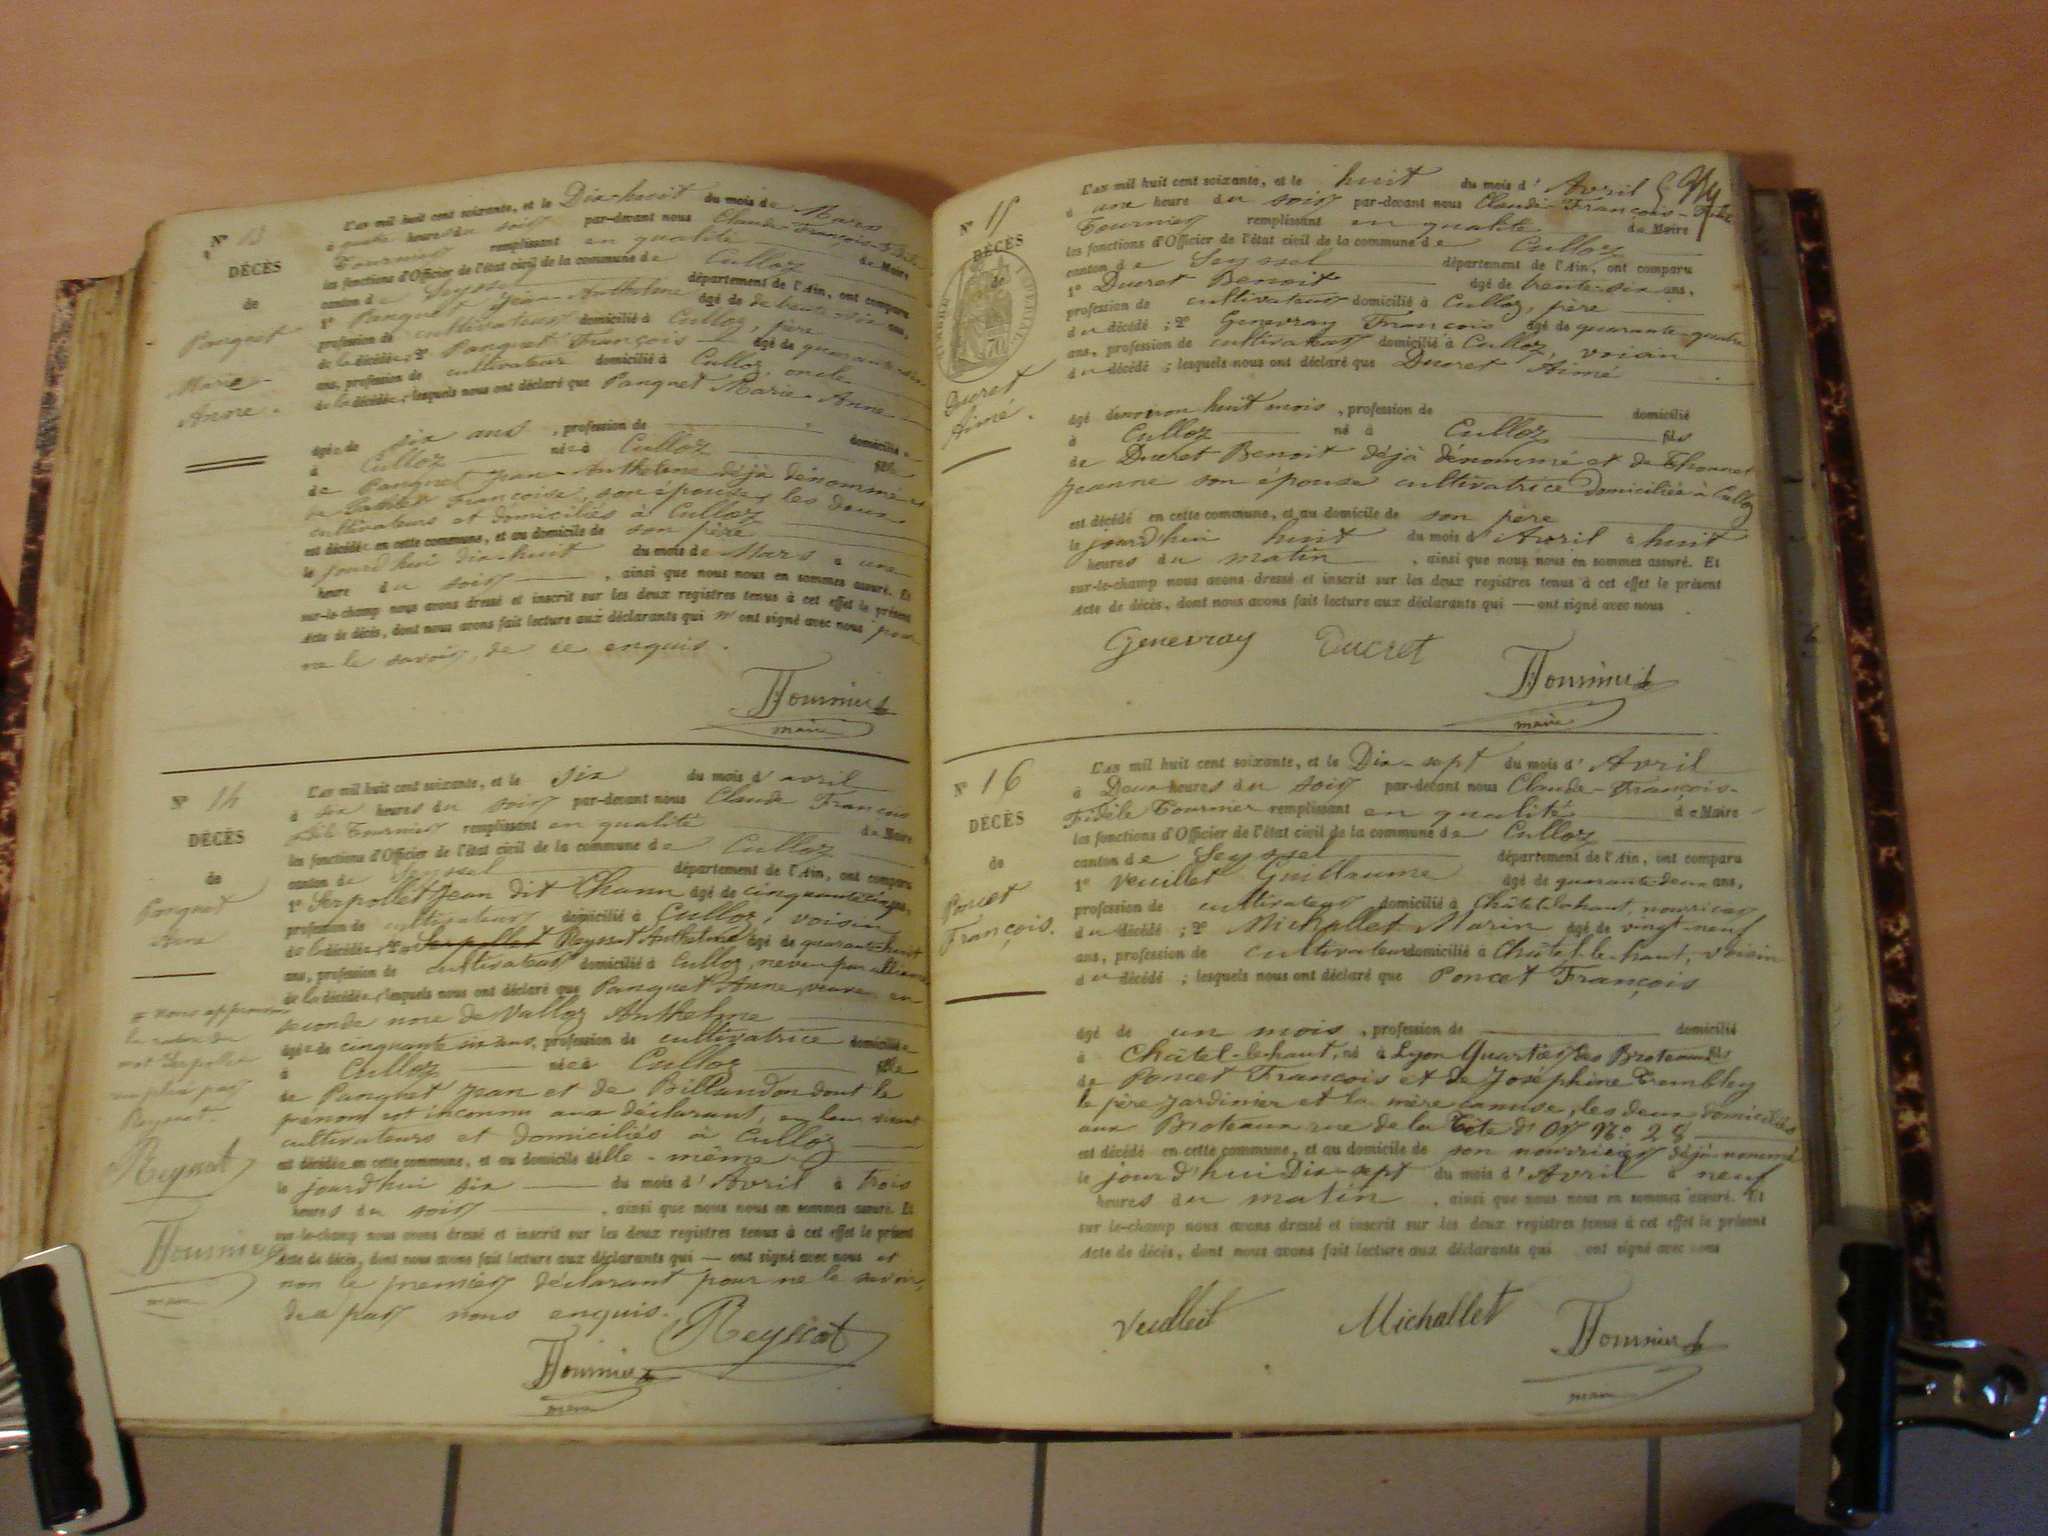 N° 13
DÉCÈS
de
Panguet
Marie
Anne.
L'an mil huit cent soixante, et le Dix-huit du mois de Mars
à quatre heures du soir par-devant nous Claude-François-Fidèle
Tournier remplissant en qualité de Maire
les fonctions d'Officier de l'état civil de la commune de Culloz
canton de Seyssel département de l'Ain, ont comparu
1° Panguet Jean-Anthelme âgé de trente-six ans,
profession de cultivateur domicilié à Culloz, père
de la décédée; 2° Panguet François âgé de quarante
ans, profession de cultivateur domicilié à Culloz, oncle
de la décédée; lesquels nous ont déclaré que Panguet Marie-Anne
âgée de six ans, profession de domiciliée
à Culloz née à Culloz fille
de Panguet Jean-Anthelme déjà dénommé et
de Françoise, son épouse, les deux
cultivateurs et domiciliés à Culloz
est décédée en cette commune, et au domicile de son père
le jourd'hui dix-huit du mois de Mars à une
heure du soir, ainsi que nous nous en sommes assuré. Et
sur-le-champ nous avons dressé et inscrit sur les deux registres tenus à cet effet le présent
Acte de décès, dont nous avons fait lecture aux déclarants qui n'ont signé avec nous pour
ne le savoir, de ce enquis.
Tournier
maire
N° 14
DÉCÈS
de
Panguet
Anne
= nous approuvons
la rature du
mot Serpollet
Reyssat.
Reyssat
Tournier
maire
L'an mil huit cent soixante, et le six du mois d'avril
à six heures du soir par-devant nous Claude François
Fidèle Tournier remplissant en qualité de Maire
les fonctions d'Officier de l'état civil de la commune de Culloz
canton de Seyssel département de l'Ain, ont comparu
1° Serpollet Jean dit Chann âgé de cinquante cinq ans,
profession de cultivateur domicilié à Culloz, voisin
de la décédée; 2° Serpollet Reyssat Anthelme âgé de quarante huit
ans, profession de cultivateur domicilié à Culloz, neveu par alliance
de la décédée; lesquels nous ont déclaré que Panguet Anne, veuve en
seconde noce de Valloz Anthelme
âgée de cinquante six ans, profession de cultivatrice domiciliée
à Culloz née à Culloz fille
de Panguet Jean et de Billaudon dont le
prénom est inconnu aux déclarant, en leur vivant
cultivateurs et domiciliés à Culloz
est décédée en cette commune, et au domicile d'elle-même
le jourd'hui six du mois d'Avril à trois
heures du soir, ainsi que nous nous en sommes assuré. Et
sur-le-champ nous avons dressé et inscrit sur les deux registres tenus à cet effet le présent
Acte de décès, dont nous avons fait lecture aux déclarants qui — ont signé avec nous et
non le premier déclarant pour ne le savoir,
de ce par nous enquis.
Reyssat
Tournier
maire
N° 15
DÉCÈS
de
Ducret
Aimé.
L'an mil huit cent soixante, et le huit du mois d'Avril
à une heure du soir par-devant nous Claude-François-Fidèle
Tournier remplissant en qualité de Maire
les fonctions d'Officier de l'état civil de la commune de Culloz
canton de Seyssel département de l'Ain, ont comparu
1° Ducret Benoit âgé de trente-six ans,
profession de cultivateur domicilié à Culloz, père
du décédé; 2° Genevray François âgé de quarante-quatre
ans, profession de cultivateur domicilié à Culloz, voisin
du décédé; lesquels nous ont déclaré que Ducret Aimé
âgé d'environ huit mois, profession de domicilié
à Culloz né à Culloz fils
de Ducret Benoit déjà dénommé et de Thonnet
Jeanne son épouse cultivatrice domiciliée à Culloz
est décédé en cette commune, et au domicile de son père
le jourd'hui huit du mois d'Avril à huit
heures du matin, ainsi que nous nous en sommes assuré. Et
sur-le-champ nous avons dressé et inscrit sur les deux registres tenus à cet effet le présent
Acte de décès, dont nous avons fait lecture aux déclarants qui — ont signé avec nous
Genevray Ducret
Tournier
maire
N° 16
DÉCÈS
de
Poncet
François.
L'an mil huit cent soixante, et le Dix-sept du mois d'Avril
à Deux heures du soir par-devant nous Claude-François-
Fidèle Tournier remplissant en qualité de Maire
les fonctions d'Officier de l'état civil de la commune de Culloz
canton de Seyssel département de l'Ain, ont comparu
1° Veuillet Guillaume âgé de quarante-deux ans,
profession de cultivateur domicilié à Châtel-le-haut, nourricier
du décédé; 2° Michallet Marin âgé de vingt-neuf
ans, profession de cultivateur domicilié à Châtel-le-haut, voisin
du décédé; lesquels nous ont déclaré que Poncet François
âgé de un mois, profession de domicilié
à Châtel-le-haut, né à Lyon Quartier des Broteaux fils
de Poncet François et de Joséphine Trembley
le père Jardinier et la mère, les deux domiciliés
aux Broteaux rue de la Tête d'Or N° 28
est décédé en cette commune, et au domicile de son nourricier déjà nommé
le jourd'hui Dix-sept du mois d'Avril à neuf
heures du matin, ainsi que nous nous en sommes assuré. Et
sur-le-champ nous avons dressé et inscrit sur les deux registres tenus à cet effet le présent
Acte de décès, dont nous avons fait lecture aux déclarants qui ont signé avec nous
Veuillet Michallet
Tournier
maire